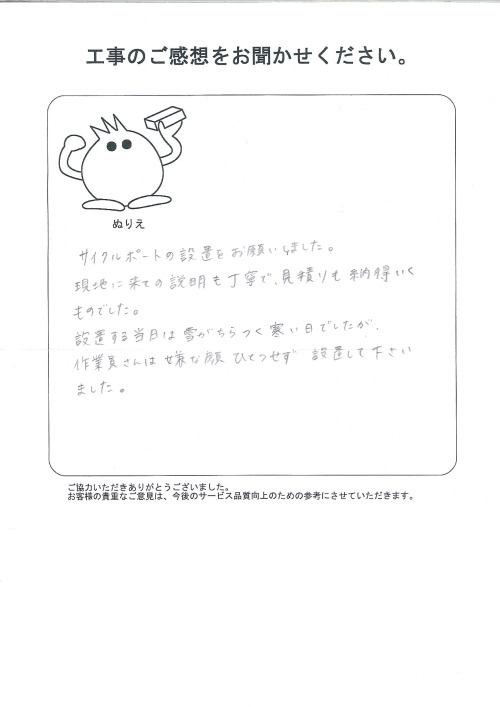 工事のご感想をお聞かせください。
ぬりえ
サイクルポートの設置をお願いしました。
現地に来ての説明も丁寧で、見積りも納得いく
ものでした。
設置する当日は雪がちらつく寒い日でしたが、
作業員さんは嫌な顔ひとつせず 設置して下さい
ました。
ご協力いただきありがとうございました。
お客様の貴重なご意見は、今後のサービス品質向上のための参考にさせていただきます。